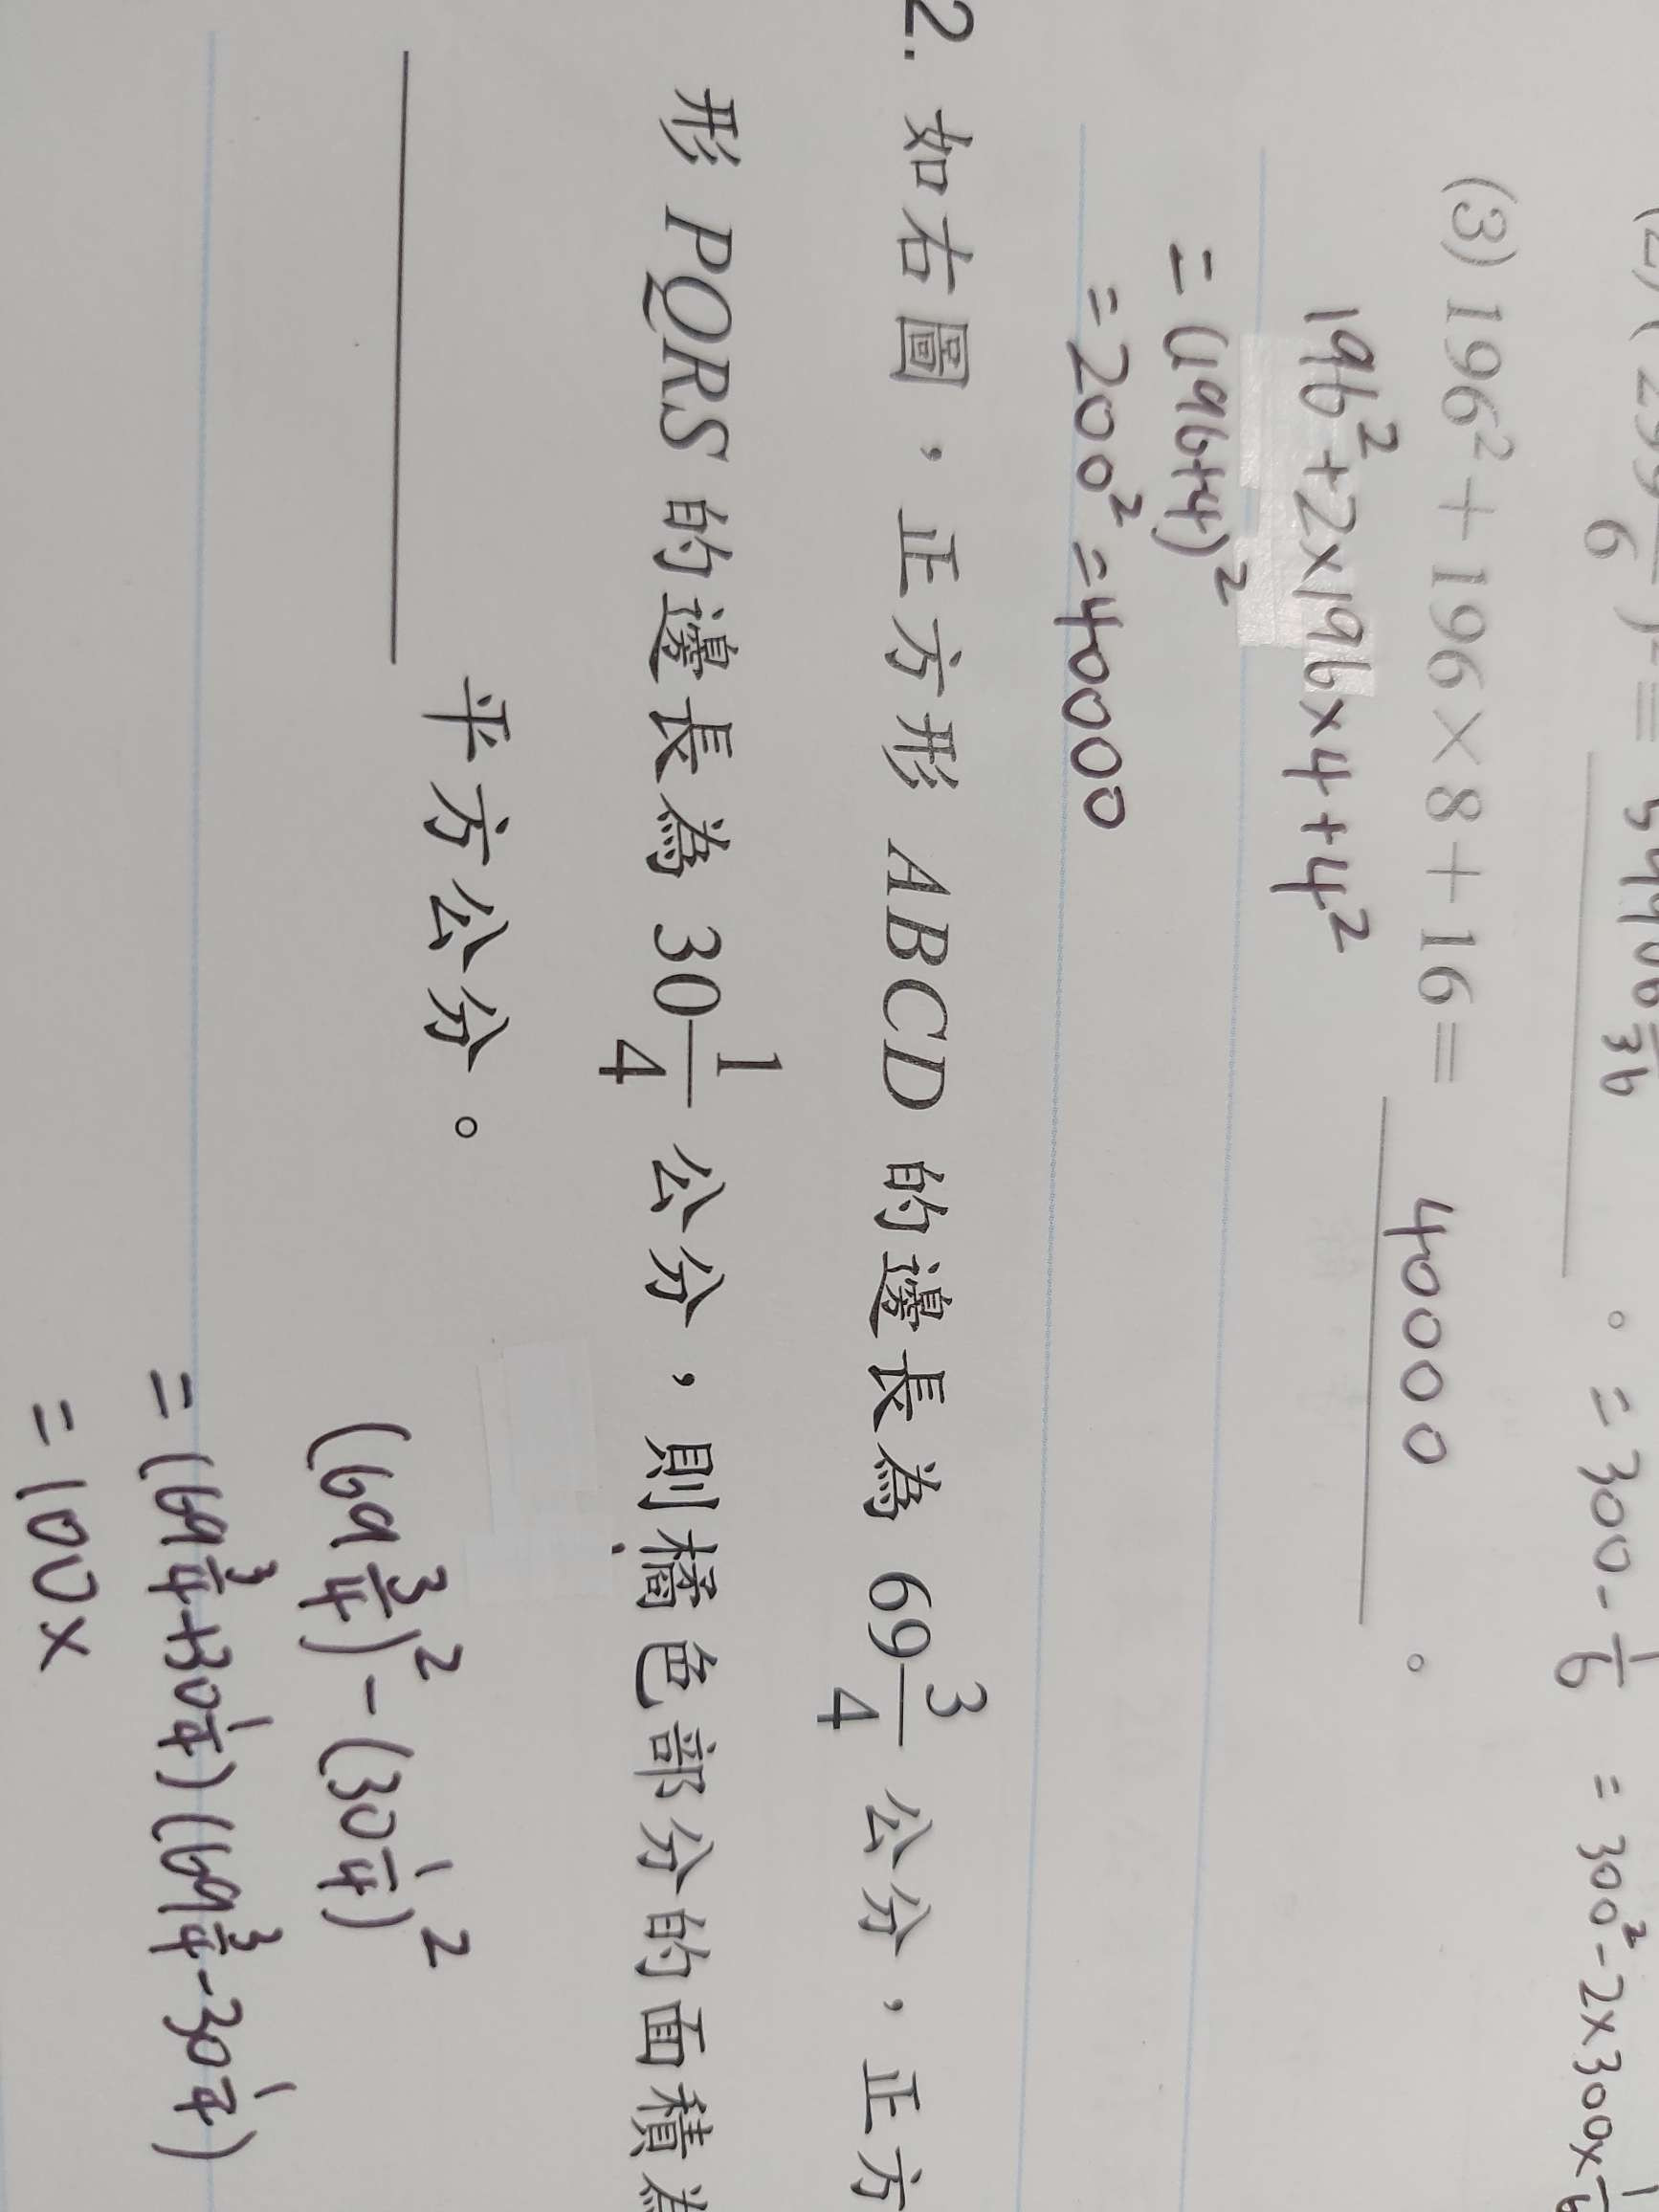 6 )² = 36 。 = 300 - 1/6 = 300² - 2×300×
(3) 196² + 196 × 8 + 16 = 40000 。
196² + 2×196×4 + 4²
= (196+4)²
= 200² = 40000
2. 如右圖，正方形 ABCD 的邊長為 69 3/4 公分，正方
形 PQRS 的邊長為 30 1/4 公分，則橘色部分的面積為
平方公分。
(69 3/4)² - (30 1/4)²
= (69 3/4 + 30 1/4) (69 3/4 - 30 1/4)
= 100×